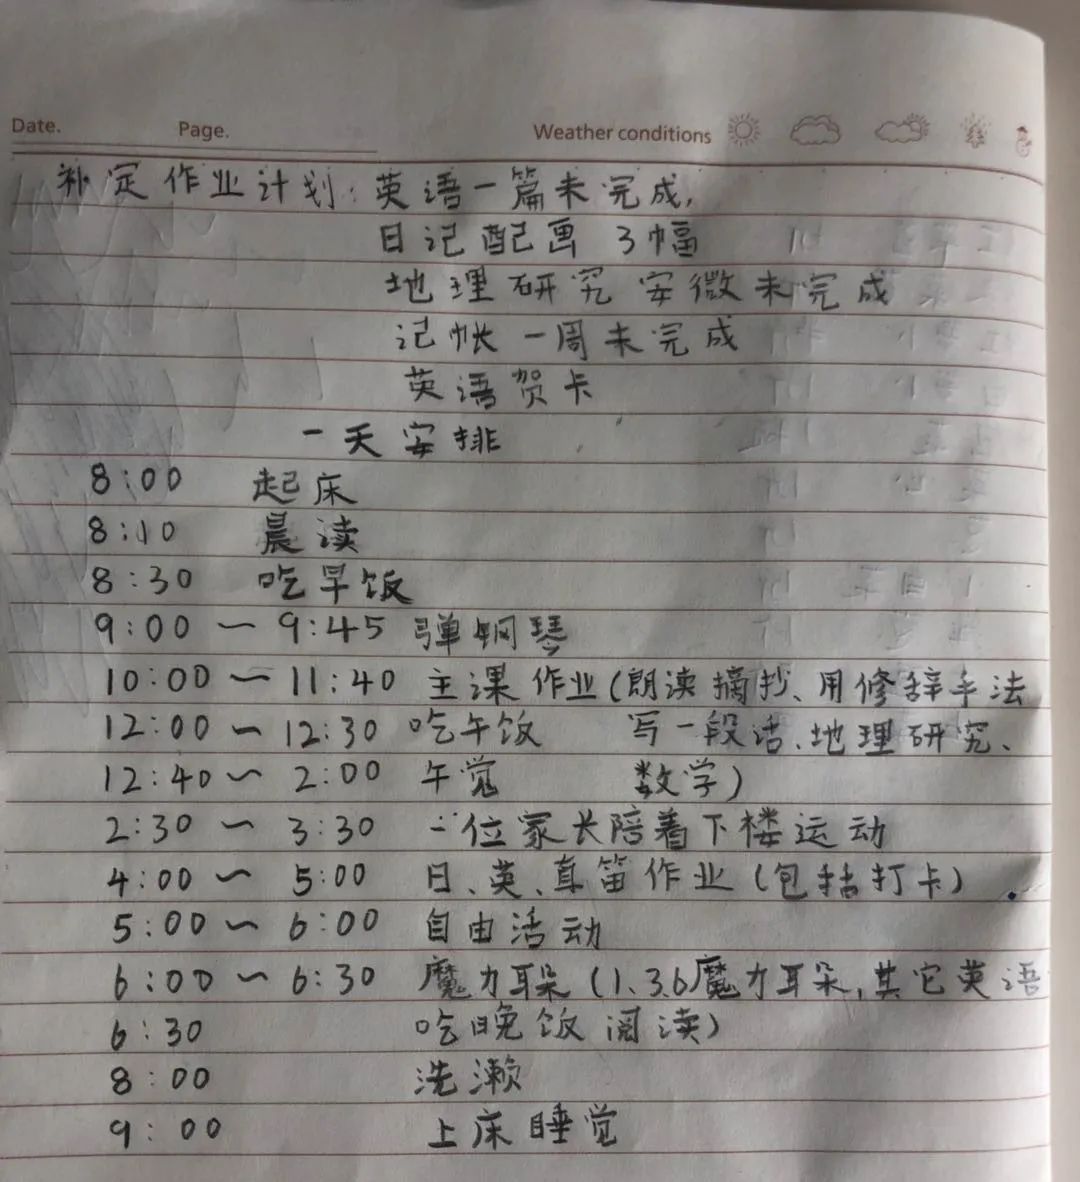 Date. Page. Weather conditions
补定作业计划:英语一篇未完成,
日记配画 3幅
地理研究安微未完成
记帐一周未完成
英语贺卡
一天安排
8:00 起床
8:10 晨读
8:30 吃早饭
9:00 ~ 9:45 弹钢琴
10:00 ~ 11:40 主课作业(朗读摘抄、用修辞手法
12:00 ~ 12:30 吃午饭 写一段话、地理研究、
12:40 ~ 2:00 午觉 数学)
2:30 ~ 3:30 一位家长陪着下楼运动
4:00 ~ 5:00 日、英、直笛作业(包括打卡)
5:00 ~ 6:00 自由活动
6:00 ~ 6:30 魔力耳朵(1、3、6魔力耳朵,其它英语
6:30 吃晚饭 阅读)
8:00 洗漱
9:00 上床睡觉